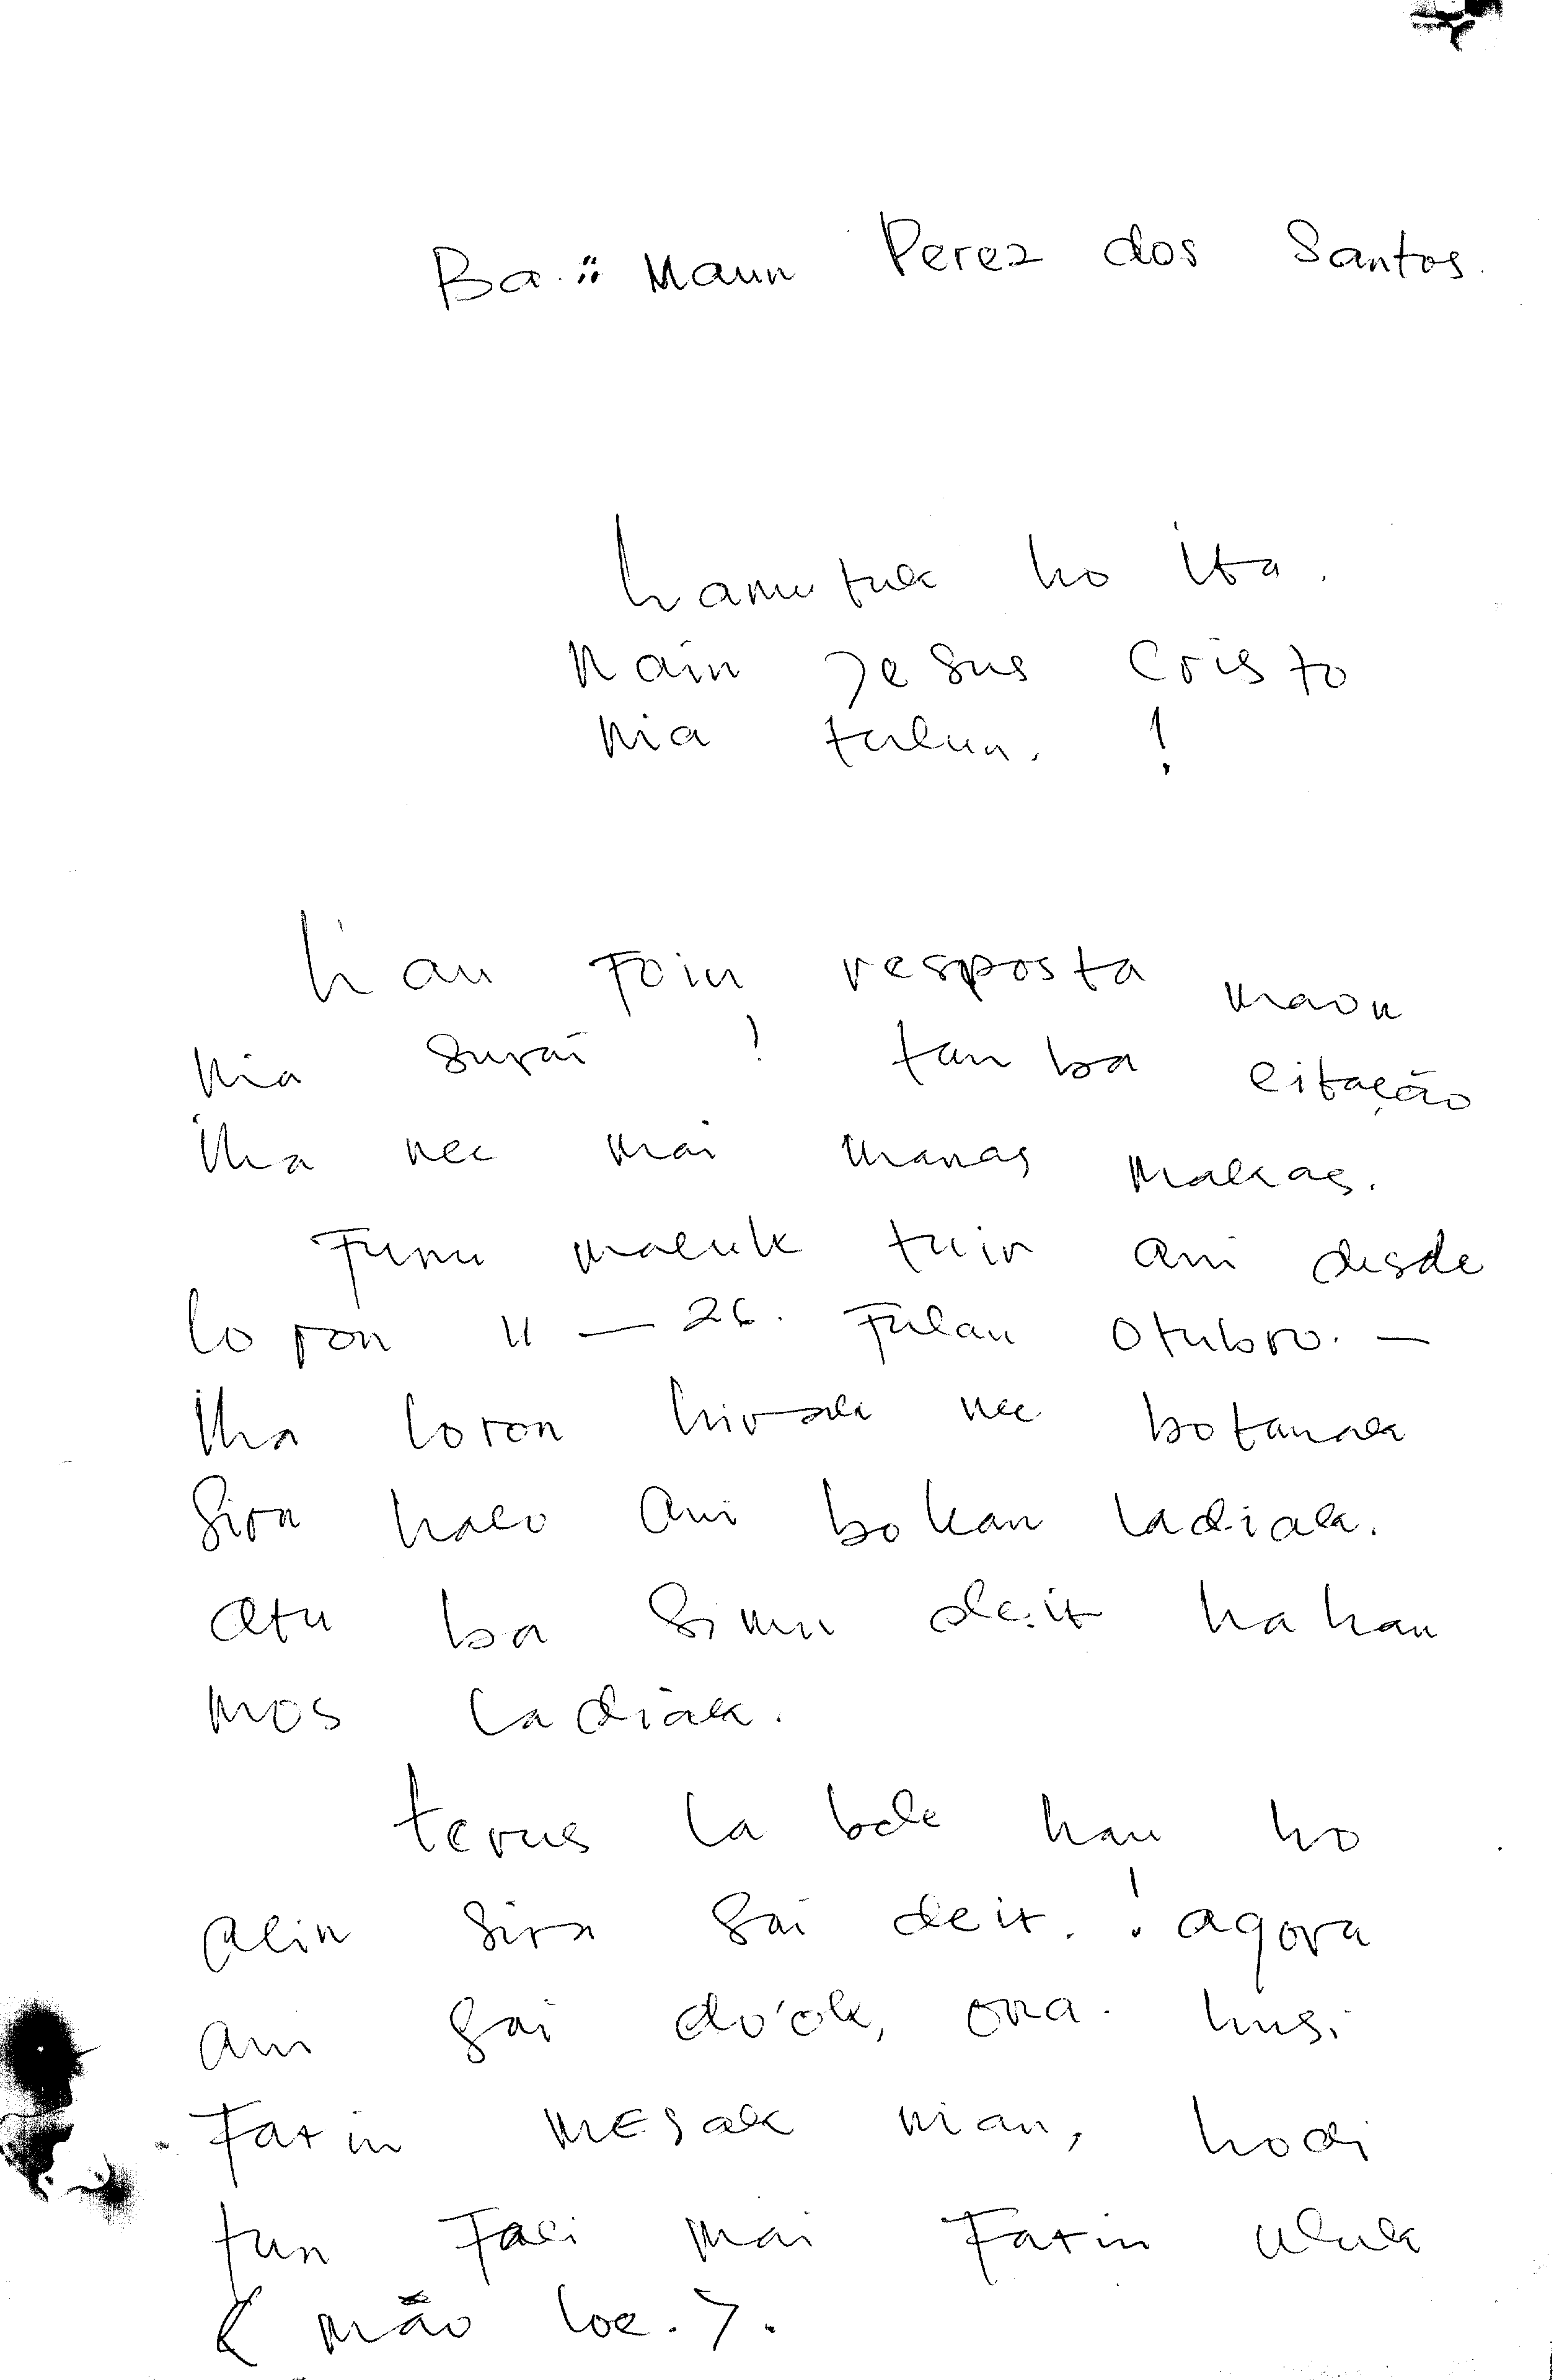 Ba :: Maun Perez dos Santos.
hamutuk ho ita.
Nain Jesus Cristo
nia tulun. !
hau Foin resposta maon
nia surat ! tan ba citação
iha nee mai manas makas.
Funu maluk tuir ami desde
loron 11 — 26. Fulan Otubro. —
iha loron hirak nee botanak
sira halo ami bokan ladiak.
atu ba simu deit hahan
mos ladiak.
terus la bele hau ho
alin sira sai deit. ! agora
ami sai do'ok, ona. husi
Fatin mesak nian, hodi
tun Fali mai Fatin uluk
( mão loe. ).